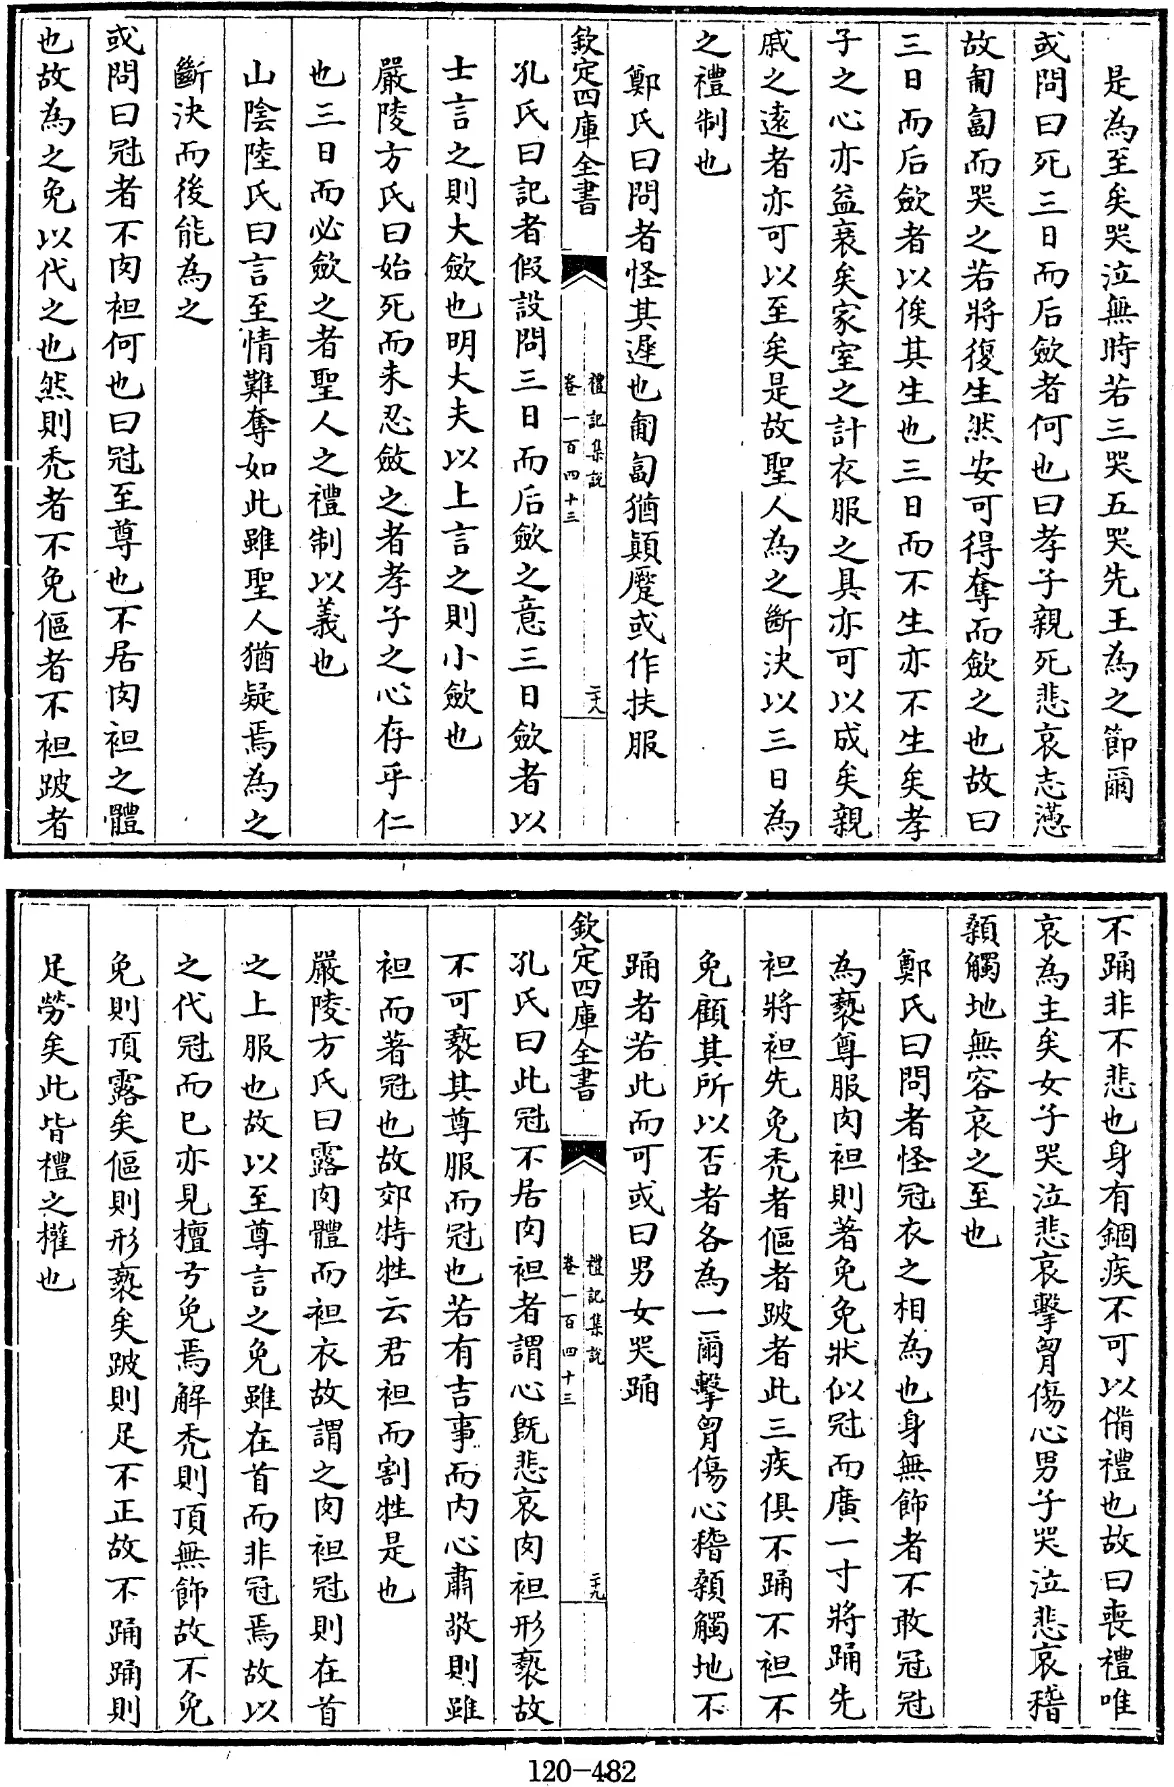 是為至矣哭泣無時若三哭五哭先王為之節爾
或問曰死三日而后斂者何也曰孝子親死悲哀志懣
故匍匐而哭之若將復生然安可得奪而斂之也故曰
三日而后斂者以俟其生也三日而不生亦不生矣孝
子之心亦益衰矣家室之計衣服之具亦可以成矣親
戚之遠者亦可以至矣是故聖人為之斷決以三日為
之禮制也
鄭氏曰問者怪其遲也匍匐猶顛蹷或作扶服
欽定四庫全書
禮記集說
卷一百四十三
二十八
孔氏曰記者假設問三日而后斂之意三日斂者以
士言之則大斂也明大夫以上言之則小斂也
嚴陵方氏曰始死而未忍斂之者孝子之心存乎仁
也三日而必斂之者聖人之禮制以義也
山陰陸氏曰言至情難奪如此雖聖人猶疑焉為之
斷決而後能為之
或問曰冠者不肉袒何也曰冠至尊也不居肉袒之體
也故為之免以代之也然則禿者不免傴者不袒跛者
不踊非不悲也身有錮疾不可以備禮也故曰喪禮唯
哀為主矣女子哭泣悲哀擊胷傷心男子哭泣悲哀稽
顙觸地無容哀之至也
鄭氏曰問者怪冠衣之相為也身無飾者不敢冠冠
為褻尊服肉袒則著免免狀似冠而廣一寸將踊先
袒將袒先免禿者傴者跛者此三疾俱不踊不袒不
免顧其所以否者各為一爾擊胷傷心稽顙觸地不
踊者若此而可或曰男女哭踊
欽定四庫全書
禮記集說
卷一百四十三
二十九
孔氏曰此冠不居肉袒者謂心旣悲哀肉袒形褻故
不可褻其尊服而冠也若有吉事而内心肅敬則雖
袒而著冠也故郊特牲云君袒而割牲是也
嚴陵方氏曰露肉體而袒衣故謂之肉袒冠則在首
之上服也故以至尊言之免雖在首而非冠焉故以
之代冠而已亦見檀弓免焉解禿則頂無飾故不免
免則頂露矣傴則形褻矣跛則足不正故不踊踊則
足勞矣此皆禮之權也
120-482